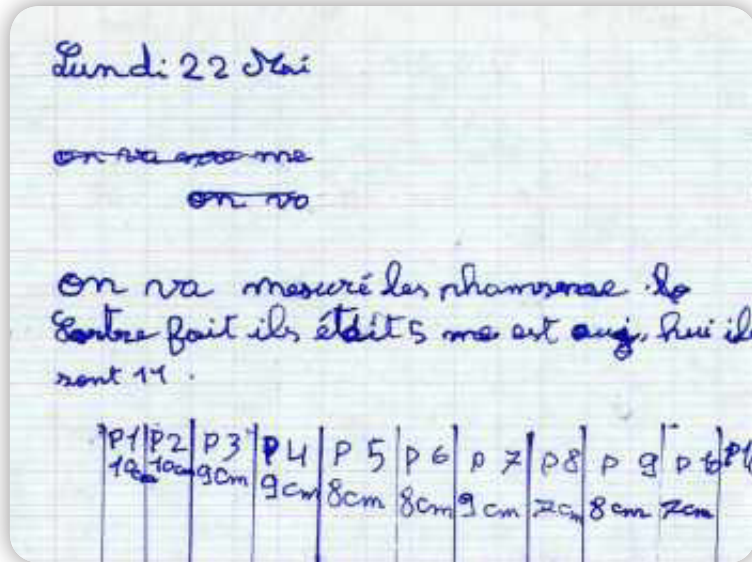 Lundi 22 Mai
on va me
on va
on va mesuré les
fait ils étáit 5 me est auj, hui ils
sont 11.
P1 P2 P3 P4 P5 P6 P7 P8 P9
10cm 10cm 9cm 9cm 8cm 8cm 9cm 7cm 8cm 7cm